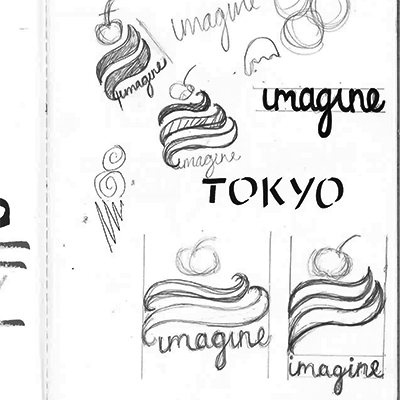 imagine
imagine
imagine
imagine
TOKYO
imagine
imagine